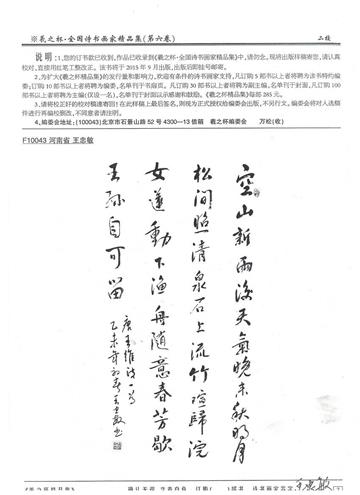 ※羲之杯·全国诗书画家精品集(第六卷)
二校
说明:1.您的订书款已收到,作品已收录到《羲之杯·全国诗书画家精品集》中,请勿念。现将出版样稿寄您,请认真
校对,直接用红笔工整改正。该书将于2015年9月出版,出版后即挂号邮寄。
2.为扩大《羲之杯精品集》的发行量和影响力,欢迎有条件的诗书画家支持,凡订购5部书以上者将聘为该书特约编
委;订购10部书以上者将聘为编委,名单刊于书扉页。凡订购30部书以上者将聘为副主编,名单刊于封面,凡订购100
部书以上者将聘为主编(仅设一名),名单刊于封面以示感谢和鼓励。《羲之杯精品集》每部285元。
3.请将校正好的校对稿速寄回!在此样稿上最后签名,则视为正式授权给编委会出版,不另行文。编委会将对入选稿
件进行再编辑润改,不同意者请注明。
4.编委会地址:(100043)北京市石景山路52号4300—13信箱 羲之杯编委会 万松(收)
F10043 河南省 王忠敏
空山新雨后天气晚来秋明月
松间照清泉石上流竹喧归浣
女莲动下渔舟随意春芳歇
王孙自可留
唐王维诗一首
乙未年初春王忠敏书
王忠敏